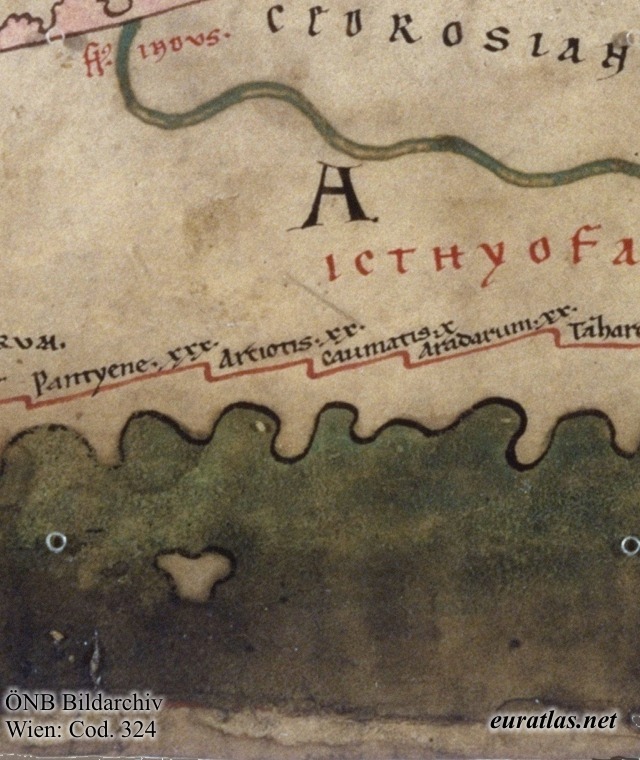 CEDROSIAN
fl. INDVS.
A
ICTHYOFA
RVM.
Pantyene. xxx. Artiotis. xx. Caumatis. x Aradarum. xx. Tahare
ÖNB Bildarchiv
Wien: Cod. 324
euratlas.net